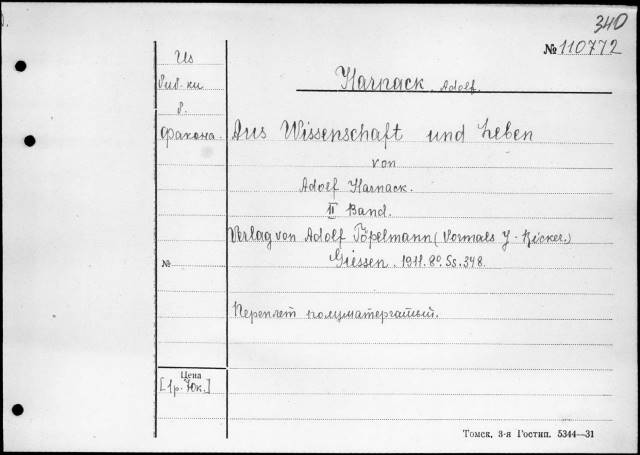 340
№ 110772
Из
биб-ки
б.
Факона.
Harnack Adolf.
Aus Wissenschaft und Leben
von
Adolf Harnack.
II Band.
Verlag von Adolf Töpelmann (Vormals J. Ricker.)
Giessen. 1911. 8º. Ss. 348.
№
Переплет полуматерчатый.
Цена
[1р. 70к.]
Томск, 3-я Гостип. 5344—31